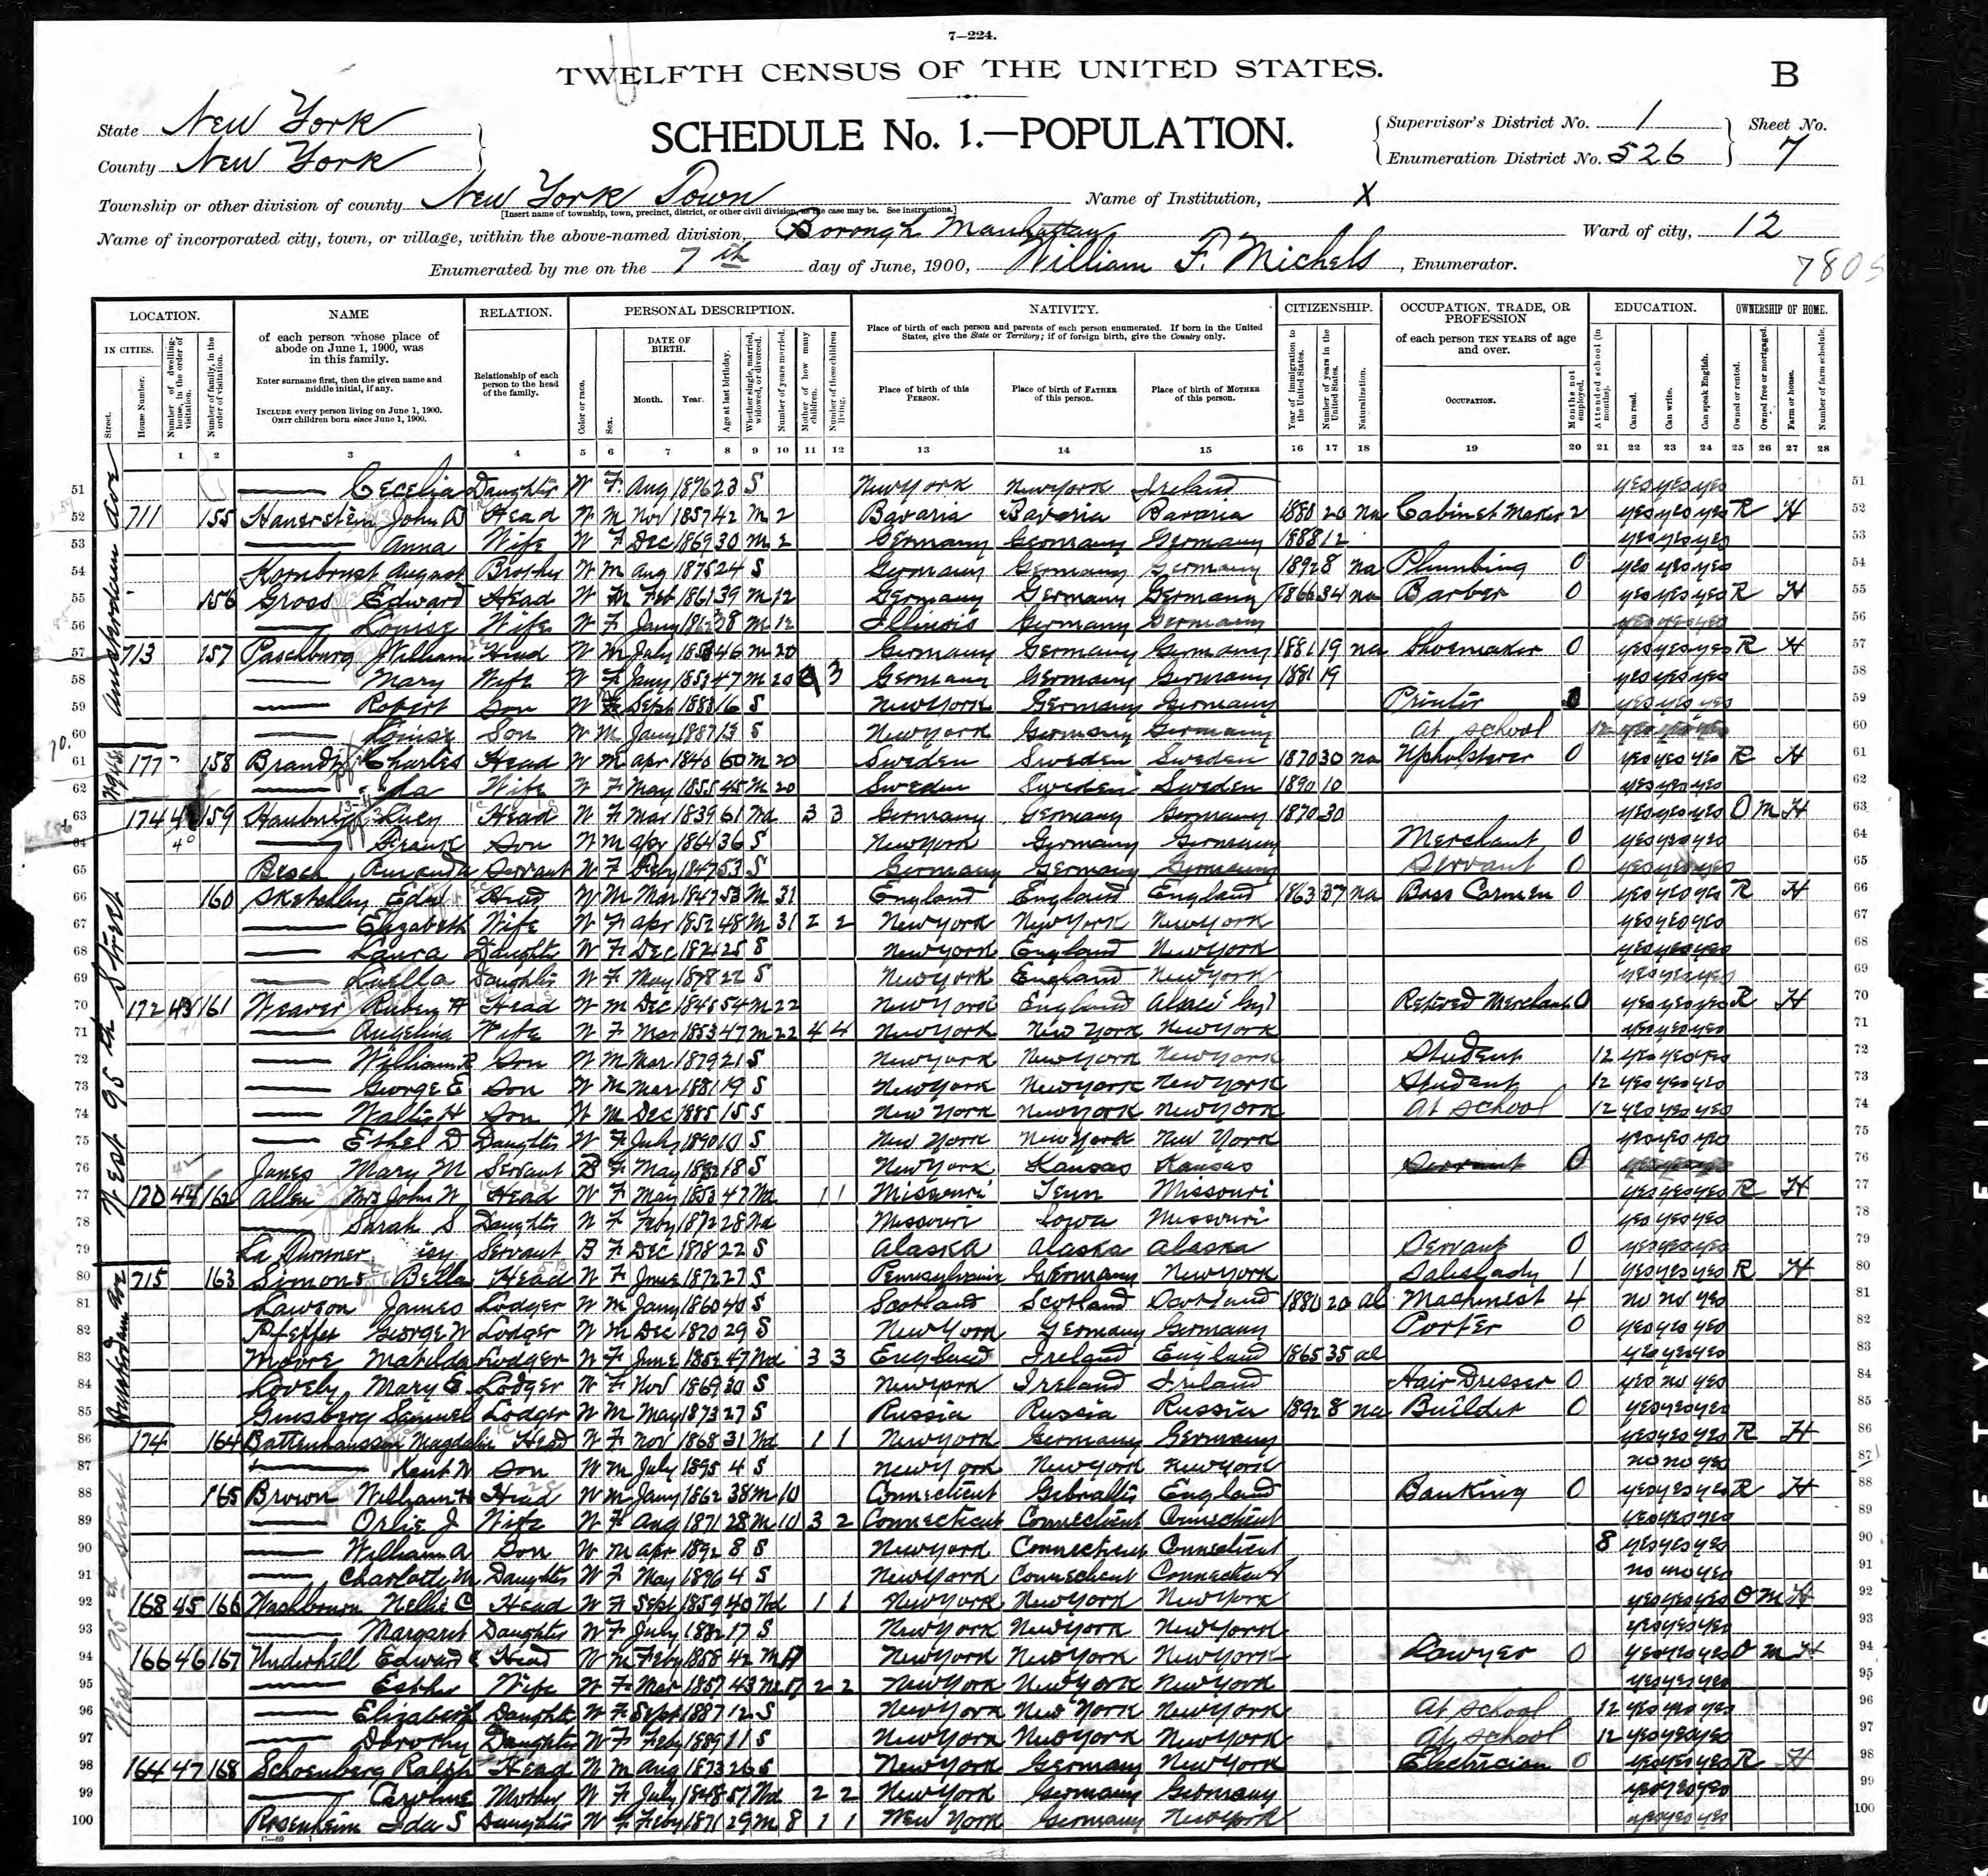 7—224.
TWELFTH CENSUS OF THE UNITED STATES.
B
State New York
SCHEDULE No. 1.—POPULATION.
Supervisor's District No. 1
Sheet No.
County New York
Enumeration District No. 526
7
Township or other division of county New York Town
Name of Institution, X
[Insert name of township, town, precinct, district, or other civil division, as the case may be. See instructions.]
Name of incorporated city, town, or village, within the above-named division, Borough Manhattan
Ward of city, 12
Enumerated by me on the 7th day of June, 1900, William F. Michels, Enumerator.
7805
LOCATION. NAME RELATION. PERSONAL DESCRIPTION. NATIVITY. CITIZENSHIP. OCCUPATION, TRADE, OR PROFESSION EDUCATION. OWNERSHIP OF HOME.
IN CITIES. of each person whose place of abode on June 1, 1900, was in this family. Enter surname first, then the given name and middle initial, if any. INCLUDE every person living on June 1, 1900. OMIT children born since June 1, 1900.
Street. House Number. Number of dwelling-house, in the order of visitation. Number of family, in the order of visitation.
Relationship of each person to the head of the family.
Color or race. Sex. DATE OF BIRTH. Month. Year. Age at last birthday. Whether single, married, widowed, or divorced. Number of years married. Mother of how many children. Number of these children living.
Place of birth of each person and parents of each person enumerated. If born in the United States, give the State or Territory; if of foreign birth, give the Country only.
Place of birth of this PERSON. Place of birth of FATHER of this person. Place of birth of MOTHER of this person.
Year of immigration to the United States. Number of years in the United States. Naturalization.
of each person TEN YEARS of age and over. OCCUPATION. Months not employed.
Attended school (in months). Can read. Can write. Can speak English.
Owned or rented. Owned free or mortgaged. Farm or house. Number of farm schedule.
1 2 3 4 5 6 7 8 9 10 11 12 13 14 15 16 17 18 19 20 21 22 23 24 25 26 27 28
Amsterdam Ave
51 Cecelia Daughter W F Aug 1876 23 S New York New York Ireland yes yes yes 51
52 711 155 John Head W M Nov 1857 42 M 2 Bavaria Bavaria Bavaria 1880 20 na Cabinet Maker 2 yes yes yes R H 52
53 Anna Wife W F Dec 1869 30 M 2 Germany Germany Germany 1888 12 yes yes yes 53
54 Kornbrust August Brother W M Aug 1875 24 S Germany Germany Germany 1892 8 na Plumbing 0 yes yes yes 54
55 156 Gross Edward Head W M Feb 1861 39 M 12 Germany Germany Germany 1866 34 na Barber 0 yes yes yes R H 55
56 Louise Wife W F Jany 1862 38 M 12 Illinois Germany Germany yes yes yes 56
57 713 157 Paschburg William Head W M July 1853 46 M 20 Germany Germany Germany 1881 19 na Shoemaker 0 yes yes yes R H 57
58 Mary Wife W F Jany 1853 47 M 20 3 Germany Germany Germany 1881 19 yes yes yes 58
59 Robert Son W Sept 1883 16 S New York Germany Germany Printer yes yes yes 59
60 Louise Son W M Jany 1887 13 S New York Germany Germany At school 12 yes yes yes 60
61 177 158 Brandt Charles Head W M Apr 1840 60 M 20 Sweden Sweden Sweden 1870 30 na Upholsterer 0 yes yes yes R H 61
62 Ida Wife W F May 1855 45 M 20 Sweden Sweden Sweden 1890 10 yes yes yes 62
West 95th Street
63 174 159 Lucy Head W F Mar 1839 61 Wd 3 3 Germany Germany Germany 1870 30 yes yes yes O M H 63
64 Frank Son W M Apr 1864 36 S New York Germany Germany Merchant 0 yes yes yes 64
65 Besch Amanda Servant W F Feby 1847 53 S Germany Germany Germany Servant 0 yes yes yes 65
66 160 Sketchley Edw Head W M Mar 1847 53 M 31 England England England 1863 37 na Boss Carmen 0 yes yes yes R H 66
67 Elizabeth Wife W F Apr 1852 48 M 31 2 2 New York New York New York yes yes yes 67
68 Laura Daughter W F Dec 1874 25 S New York England New York yes yes yes 68
69 Luella Daughter W F May 1878 22 S New York England New York yes yes yes 69
70 172 43 161 Weaver H Head W M Dec 1846 54 M 22 New York England Retired Merchant 0 yes yes yes R H 70
71 Angelina Wife W F Mar 1853 47 M 22 4 4 New York New York New York yes yes yes 71
72 William R Son W M Mar 1879 21 S New York New York New York Student 12 yes yes yes 72
73 George E Son W M Mar 1881 19 S New York New York New York Student 12 yes yes yes 73
74 H Son W M Dec 1885 15 S New York New York New York At school 12 yes yes yes 74
75 Ethel D Daughter W F July 1890 10 S New York New York New York yes yes yes 75
76 Jones Mary M Servant B F May 1882 18 S New York Kansas Kansas Servant 0 yes yes yes 76
77 170 44 162 Allen Mrs John W Head W F May 1853 47 Wd 1 1 Missouri Tenn Missouri yes yes yes R H 77
78 Sarah S Daughter W F Feby 1872 28 Wd Missouri Iowa Missouri yes yes yes 78
79 Servant B F Dec 1878 22 S Alaska Alaska Alaska Servant 0 yes yes yes 79
Amsterdam Ave
80 715 163 Simons Bella Head W F June 1872 27 S Pennsylvania Germany New York Saleslady 1 yes yes yes R H 80
81 Lawson James Lodger W M Jany 1860 40 S Scotland Scotland Scotland 1880 20 al Machinest 4 no no yes 81
82 Pfeffer George W Lodger W M Dec 1870 29 S New York Germany Germany Porter 0 yes yes yes 82
83 Moore Matilda Lodger W F June 1852 47 Wd 3 3 England Ireland England 1865 35 al yes yes yes 83
84 Lovely Mary E Lodger W F Nov 1869 30 S New York Ireland Ireland Hair Dresser 0 yes no yes 84
85 Ginsberg Samuel Lodger W M May 1873 27 S Russia Russia Russia 1892 8 na Builder 0 yes yes yes 85
West 95th Street
86 174 164 Battenhausen Magdalin Head W F Nov 1868 31 Wd 1 1 New York Germany Germany yes yes yes R H 86
87 Kent W Son W M July 1895 4 S New York New York New York no no yes 87
88 165 Brown William H Head W M Jany 1862 38 M 10 Connecticut England Banking 0 yes yes yes R H 88
89 Orlie J Wife W F Aug 1871 28 M 10 3 2 Connecticut Connecticut Connecticut yes yes yes 89
90 William A Son W M Apr 1892 8 S New York Connecticut Connecticut 8 yes yes yes 90
91 Charlotte M Daughter W F May 1896 4 S New York Connecticut Connecticut no no yes 91
92 168 45 166 Washbourn Nellie C Head W F Sept 1859 40 Wd 1 1 New York New York New York yes yes yes O M H 92
93 Margaret Daughter W F July 1882 17 S New York New York New York yes yes yes 93
94 166 46 167 Underhill Edward Head W M Feby 1858 42 M New York New York New York Lawyer 0 yes yes yes O M H 94
95 Esther Wife W F Mar 1857 43 M 2 2 New York New York New York yes yes yes 95
96 Elizabeth Daughter W F Sept 1887 12 S New York New York New York At school 12 yes yes yes 96
97 Dorothy Daughter W F Feby 1889 11 S New York New York New York At school 12 yes yes yes 97
98 164 47 168 Schoenberg Ralph Head W M Aug 1873 26 S New York Germany New York Electrician 0 yes yes yes R H 98
99 Caroline Mother W F July 1848 51 Wd 2 2 New York Germany Germany yes yes yes 99
100 Rosenheim Ida S Daughter W F Feby 1871 29 M 8 1 1 New York Germany New York yes yes yes 100
C—69 1
SAFETY FILM